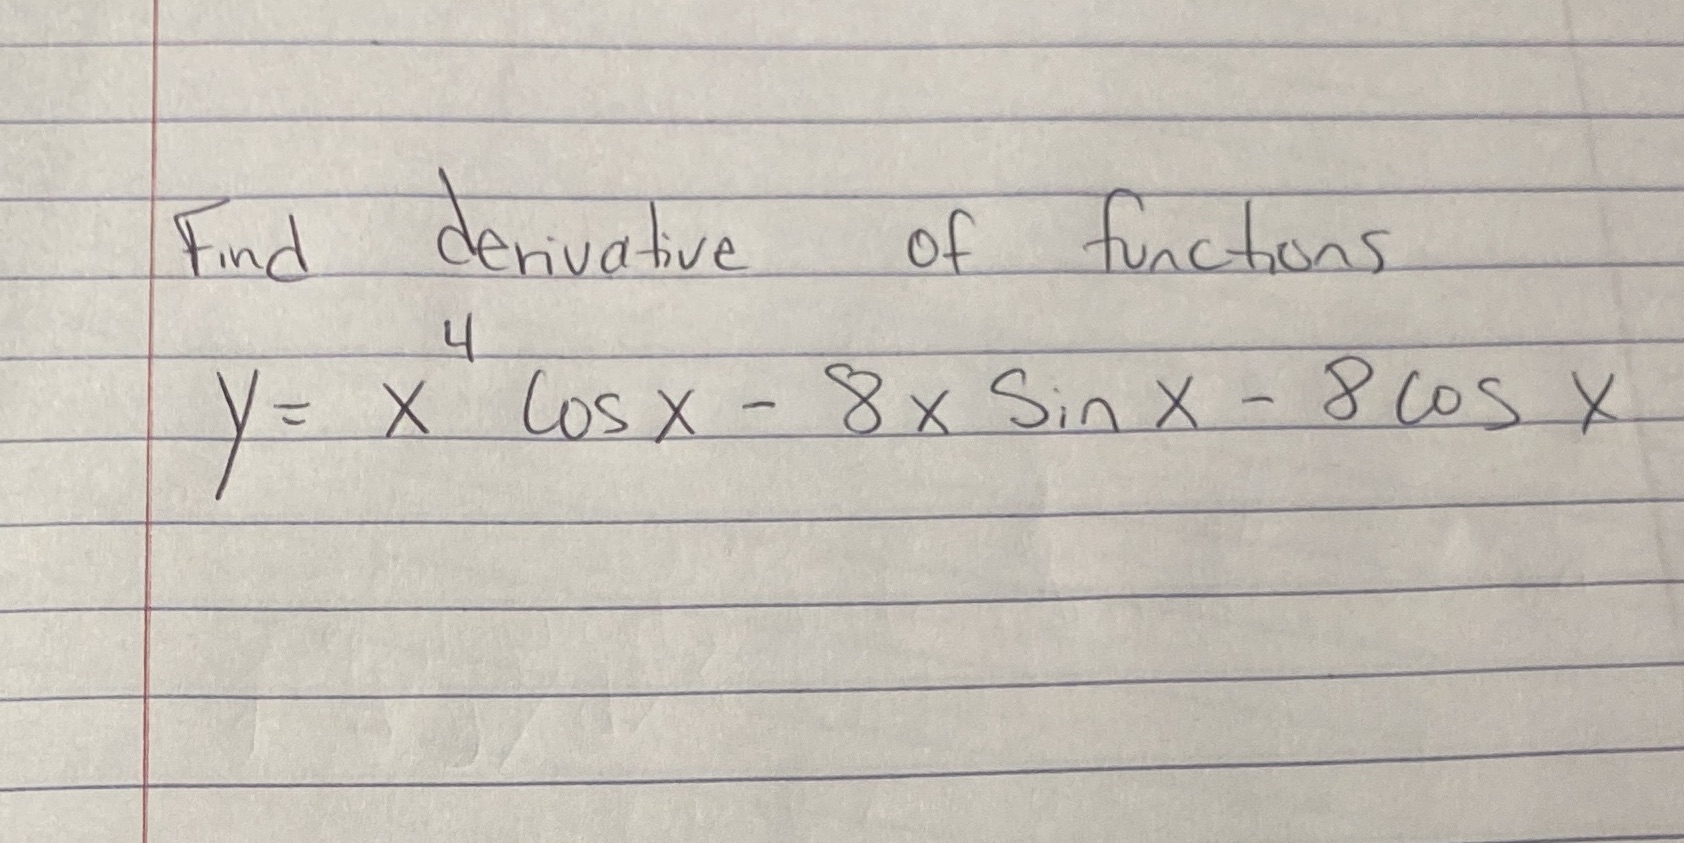 Find derivative of functions
y = x⁴ cos x - 8x Sin x - 8 cos x